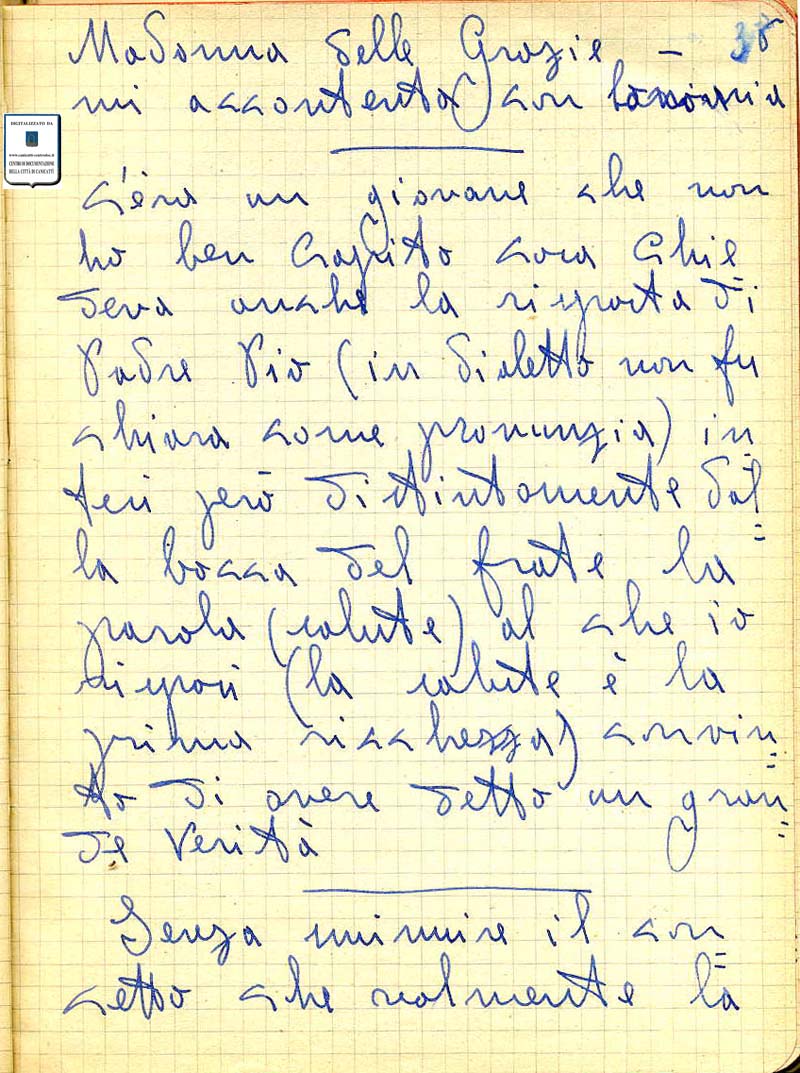 Madonna delle Grazie – 38
mi accontenta) con
DIGITALIZZATO DA
www.canicatti-centrodoc.it
CENTRO DI DOCUMENTAZIONE
DELLA CITTÀ DI CANICATTÌ
c'era un giovane che non
ho ben capito cosa chie=
deva anche la risposta di
Padre Pio (in dialetto non fu
chiara come pronunzia) in=
tesi però distintamente dal=
la bocca del frate la
parola (salute) al che io
risposi (la salute è la
prima ricchezza) convin=
to di avere detto un gran=
de verità
Senza sminuire il con=
cetto che realmente la